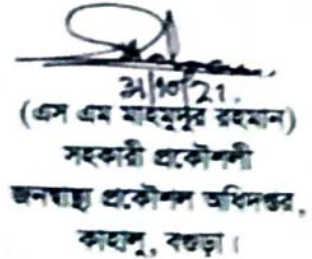 31/10/21.
(এস এম মাহমুদুর রহমান)
সহকারী প্রকৌশলী
জনস্বাস্থ্য প্রকৌশল অধিদপ্তর,
কাহালু, বগুড়া।